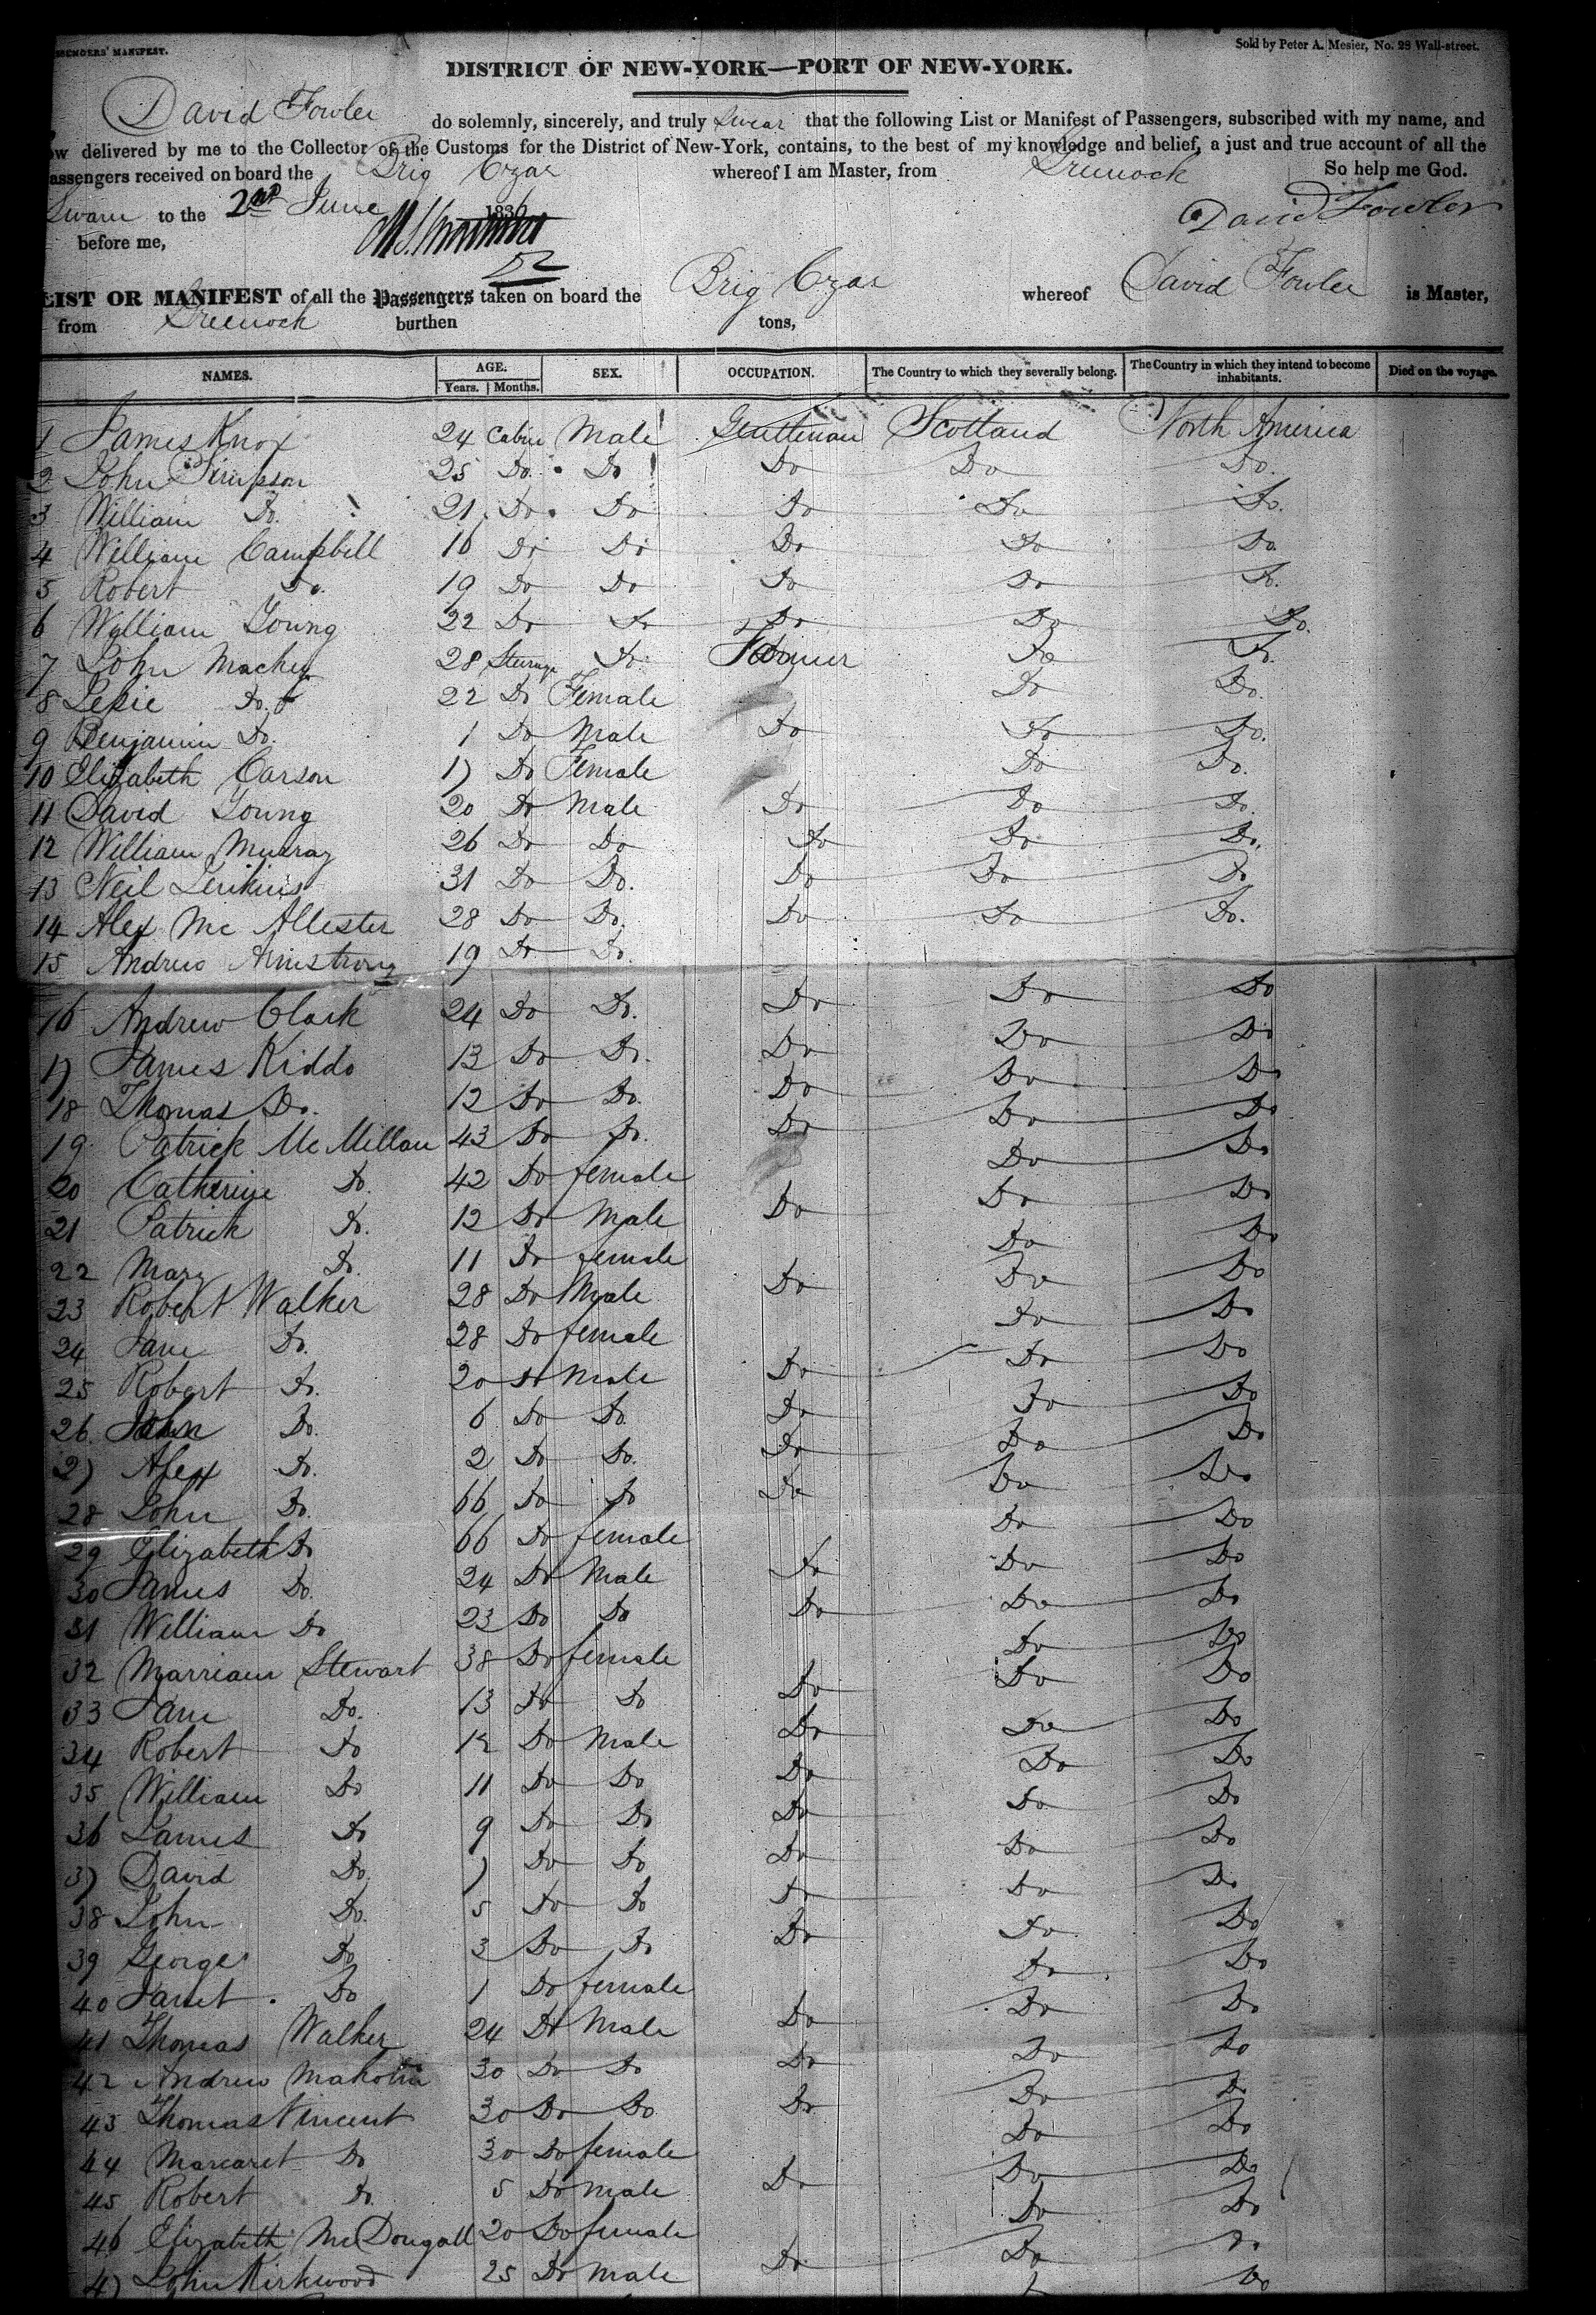 SSENGERS' MANIFEST.
Sold by Peter A. Mesier, No. 28 Wall-street.
DISTRICT OF NEW-YORK—PORT OF NEW-YORK.
David Fowler do solemnly, sincerely, and truly swear that the following List or Manifest of Passengers, subscribed with my name, and
ow delivered by me to the Collector of the Customs for the District of New-York, contains, to the best of my knowledge and belief, a just and true account of all the
assengers received on board the Brig Czar whereof I am Master, from Greenock So help me God.
Sworn to the 2nd June 1836 David Fowler
before me,
52
LIST OR MANIFEST of all the Passengers taken on board the Brig Czar whereof David Fowler is Master,
from Greenock burthen tons,
NAMES. AGE. Years. Months. SEX. OCCUPATION. The Country to which they severally belong. The Country in which they intend to become inhabitants. Died on the voyage.
1 James Knox 24 Cabin Male Gentleman Scotland North America
2 John Simpson 25 Do Do Do Do Do.
3 William Do. 21 Do Do Do Do Do.
4 William Campbell 16 Do Do Do Do Do
5 Robert Do. 19 Do Do Do Do Do.
6 William Young 22 Do Do Do Do Do.
7 John Mackey 28 Steerage Do Farmer Do Do.
8 Do. 22 Do Female Do Do.
9 Benjamin Do. 1 Do Male Do Do Do.
10 Elizabeth Carson 17 Do Female Do Do.
11 David Young 20 Do Male Do Do Do.
12 William Murray 26 Do Do Do Do Do.
13 Neil Jenkins 31 Do Do. Do Do Do
14 Alex Mc Allester 28 Do Do. Do Do Do.
15 Andrew Armstrong 19 Do Do.
16 Andrew Clark 24 Do Do. Do Do Do
17 James Kiddo 13 Do Do. Do Do Do
18 Thomas Do. 12 Do Do. Do Do Do
19 Patrick Mc Millan 43 Do Do. Do Do Do
20 Catherine Do. 42 Do female Do Do
21 Patrick Do. 12 Do Male Do Do Do
22 Mary Do. 11 Do female Do Do
23 Robert Walker 28 Do Male Do Do Do
24 Jane Do. 28 Do female Do Do
25 Robert Do. 20 Do Male Do Do Do
26 John Do. 6 Do Do. Do Do Do
27 Alex Do. 2 Do Do. Do Do Do
28 John Do. 66 Do Do Do Do Do
29 Elizabeth Do 66 Do female Do Do
30 James Do. 24 Do Male Do Do Do
31 William Do 23 Do Do Do Do Do
32 Marriam Stewart 38 Do female Do Do
33 Jane Do. 13 Do Do Do Do Do
34 Robert Do 12 Do Male Do Do Do
35 William Do 11 Do Do Do Do Do
36 James Do 9 Do Do Do Do Do
37 David Do. 7 Do Do Do Do Do
38 John Do. 5 Do Do Do Do Do
39 George Do 3 Do Do Do Do Do
40 Janet Do 1 Do female Do Do
41 Thomas Walker 24 Do Male Do Do Do
42 Andrew 30 Do Do Do Do Do
43 Thomas Vincent 30 Do Do Do Do Do
44 Margaret Do 30 Do female Do Do
45 Robert Do. 5 Do Male Do Do Do
46 Elizabeth Mc Dougall 20 Do female Do Do
47 John Kirkwood 25 Do Male Do Do Do